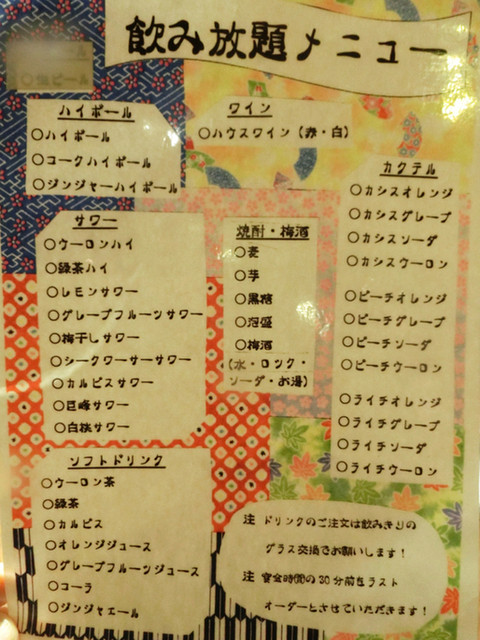 飲み放題メニュー
ハイボール
○ハイボール
○コークハイボール
○ジンジャーハイボール
ワイン
○ハウスワイン（赤・白）
サワー
○ウーロンハイ
○緑茶ハイ
○レモンサワー
○グレープフルーツサワー
○梅干しサワー
○シークワーサーサワー
○カルピスサワー
○巨峰サワー
○白桃サワー
焼酎・梅酒
○麦
○芋
○黒糖
○泡盛
○梅酒
（水・ロック・
ソーダ・お湯）
カクテル
○カシスオレンジ
○カシスグレープ
○カシスソーダ
○カシスウーロン
○ピーチオレンジ
○ピーチグレープ
○ピーチソーダ
○ピーチウーロン
○ライチオレンジ
○ライチグレープ
○ライチソーダ
○ライチウーロン
ソフトドリンク
○ウーロン茶
○緑茶
○カルピス
○オレンジジュース
○グレープフルーツジュース
○コーラ
○ジンジャエール
注 ドリンクのご注文は飲みきりの
グラス交換でお願いします！
注 宴会時間の30分前をラスト
オーダーとさせていただきます！